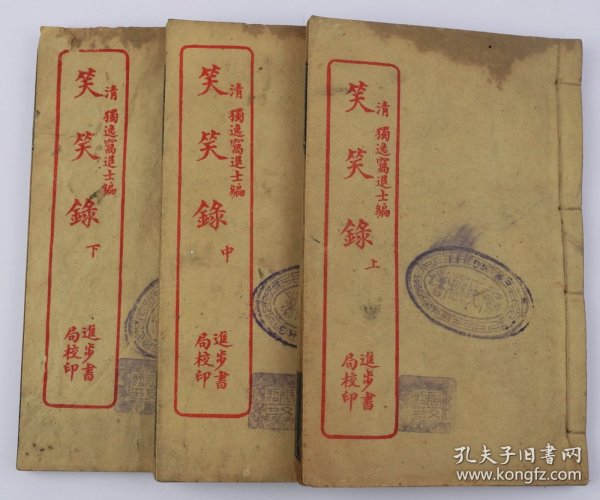 清 獨逸窩退士編
笑笑錄 上
進步書
局校印
清 獨逸窩退士編
笑笑錄 中
進步書
局校印
清 獨逸窩退士編
笑笑錄 下
進步書
局校印
孔夫子旧书网
www.kongfz.com